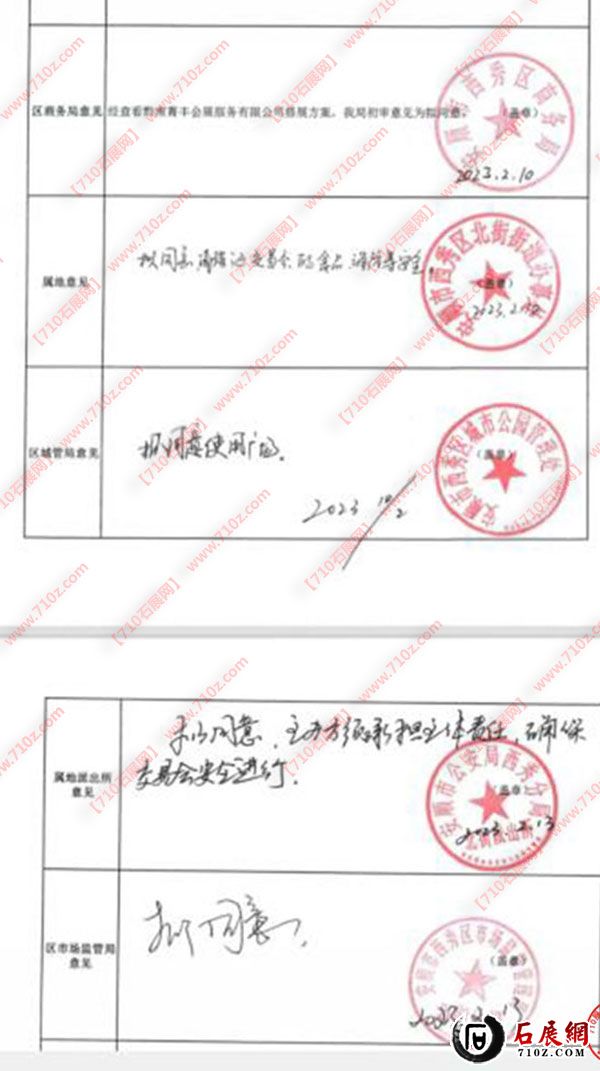 区商务局意见 经查看黔南青丰会展服务有限公司搭展方案，我局初审意见为拟同意。 （盖章）
安顺市西秀区商务局
2023.2.10
属地意见
拟同意
（盖章）
安顺市西秀区北街街道办事处
区城管局意见
拟同意使用广场。
（盖章）
安顺市西秀区城市公园管理处
2023 10/2
拟同意，主办方须承担主体责任，确保
属地派出所
意见
交易会安全进行.
（盖章）
安顺市公安局西秀分局
2023.2.13
区市场监管局
意见
拟同意.
（盖章）
2023.2.13
石展網
710Z.COM
【710石展网】 www.710z.com